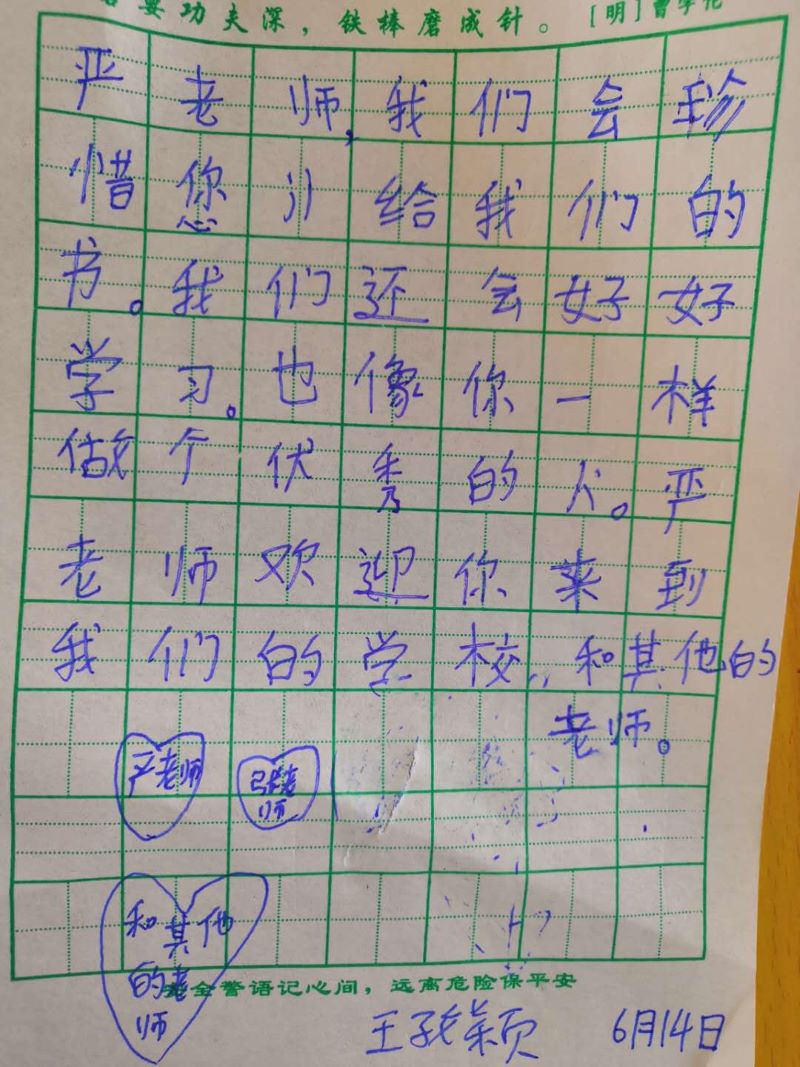 要功夫深，铁棒磨成针。［明］曹学佺
严老师,我们会珍
惜您讠给我们的
书。我们还会好好
学习。也像你一样
做个伏秀的人。严
老师欢迎你来到
我们的学校,,和其他的
老师。
严老师
老师
和其他
的老
师
全警语记心间，远离危险保平安
6月14日